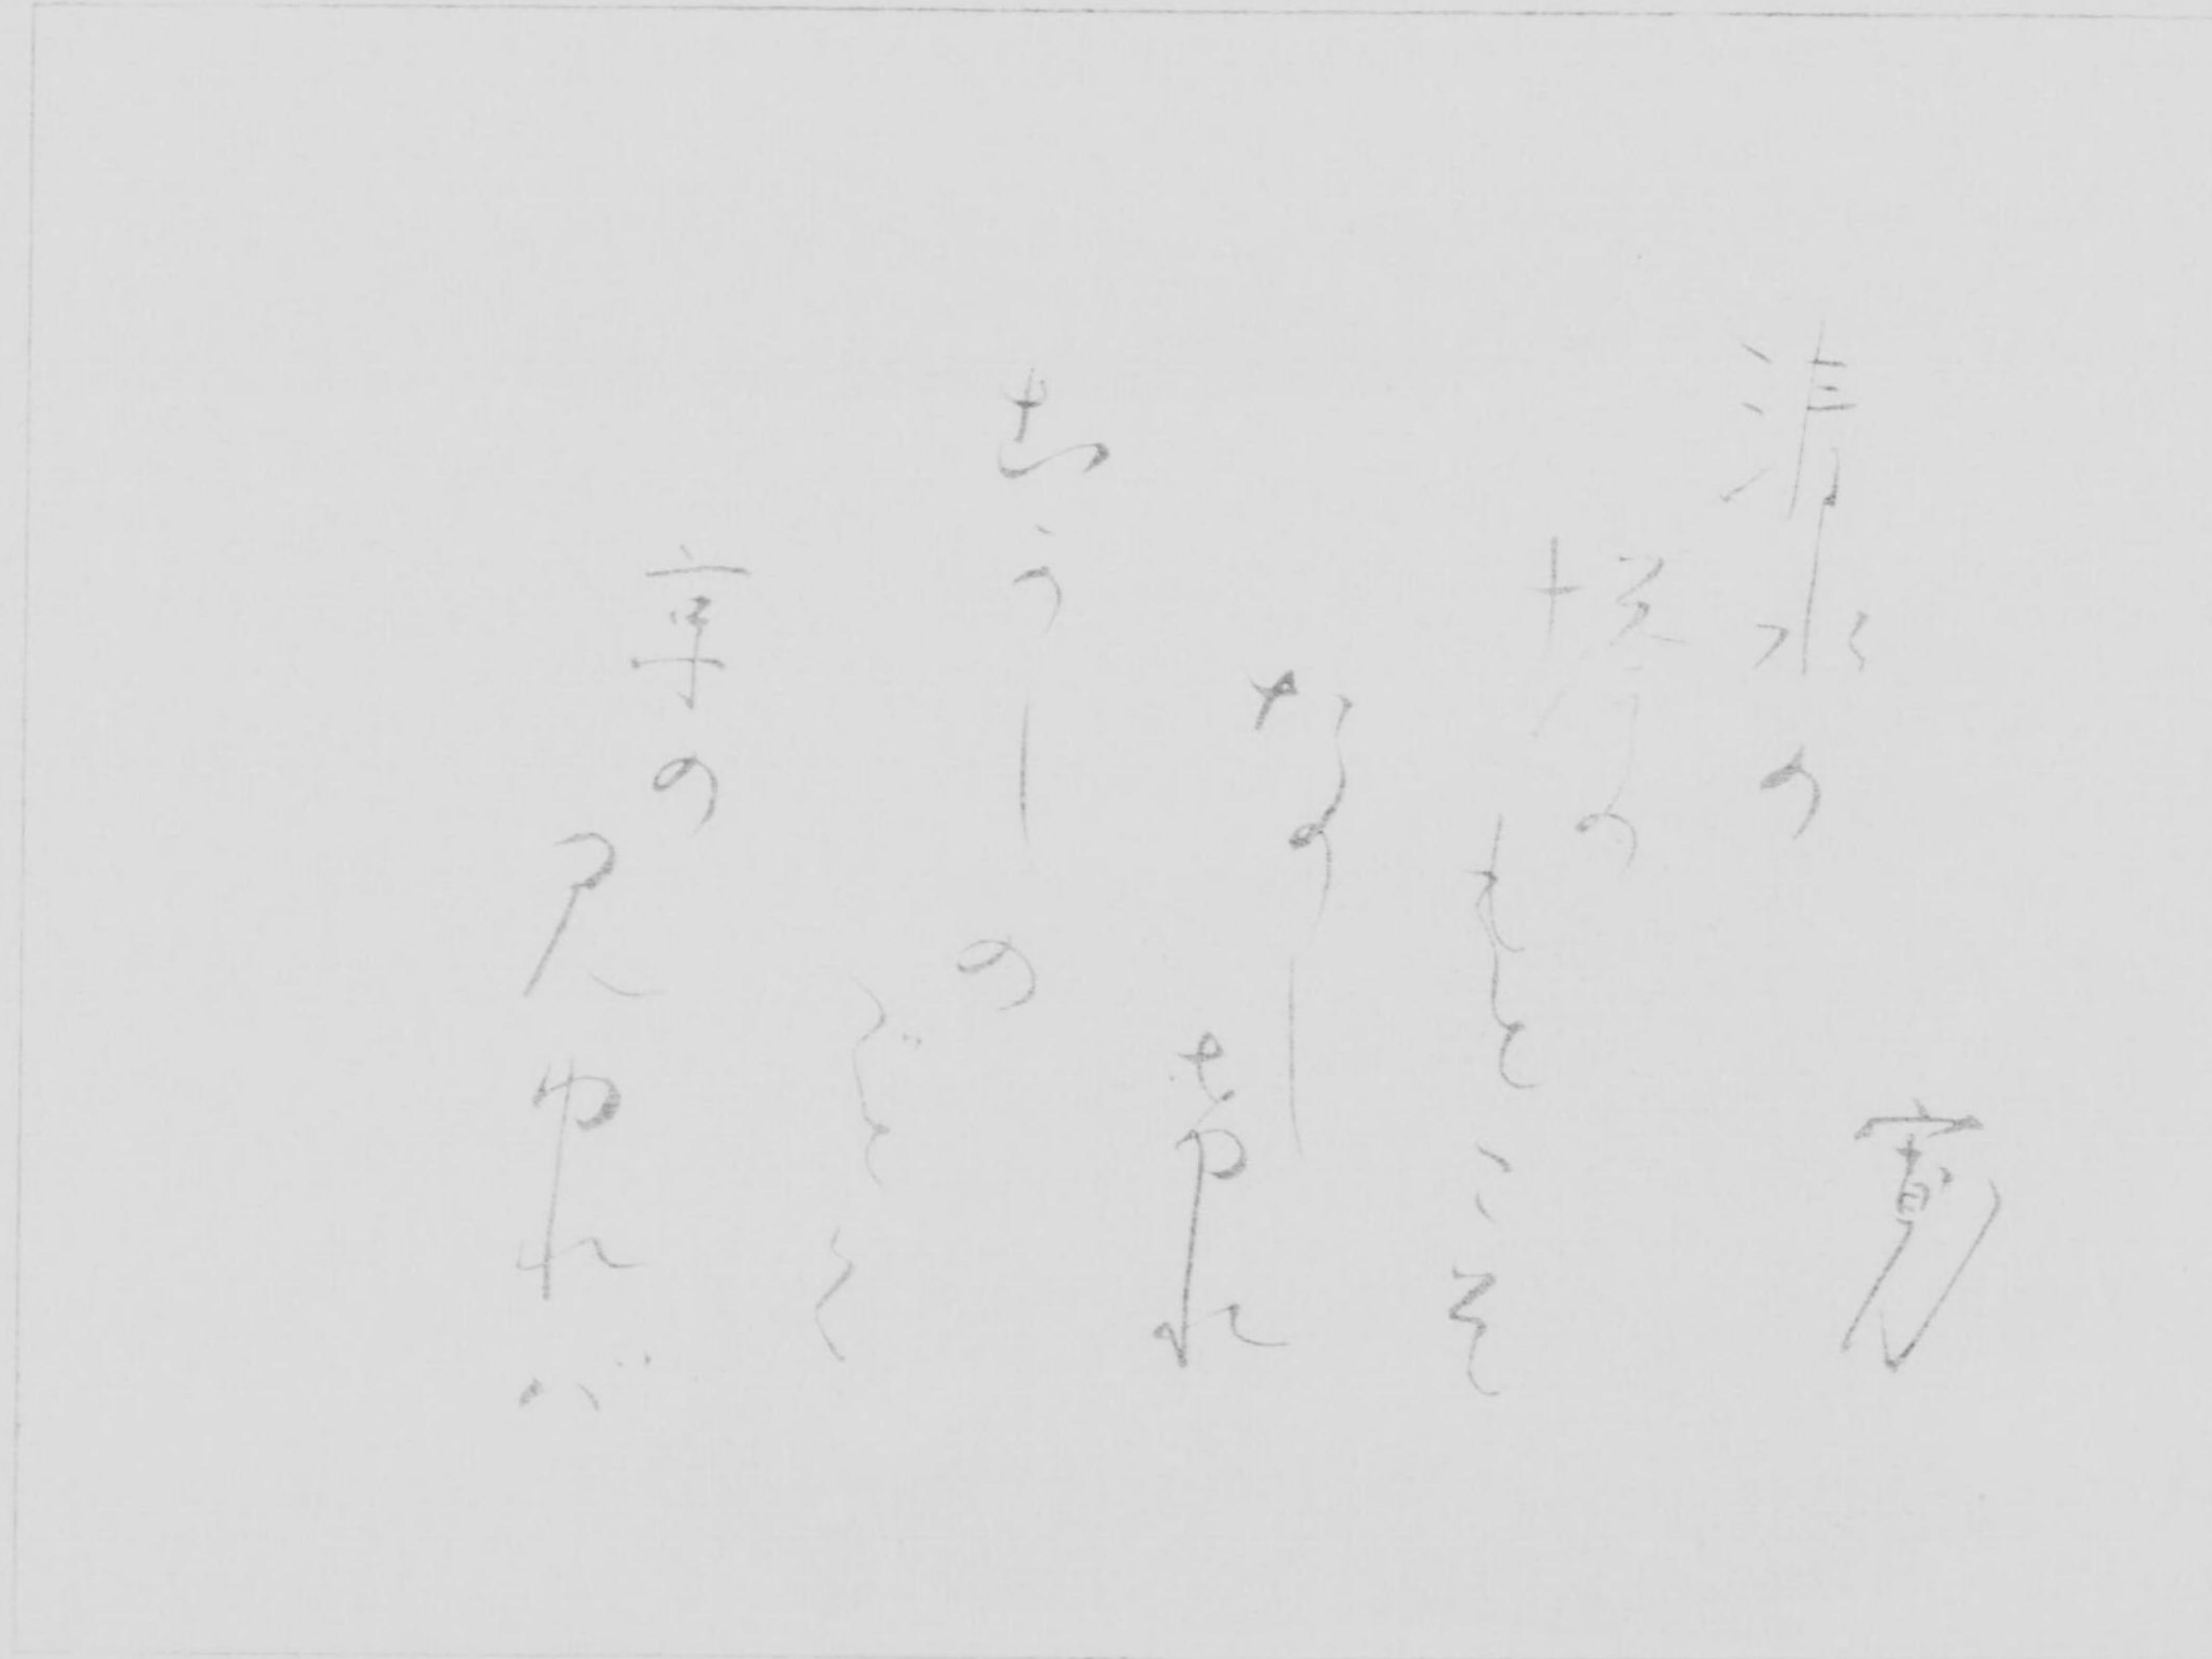 寛
清水の
桜の
もとこそ
たのし
けれ
むかしの
ごとく
京の
見ゆれば